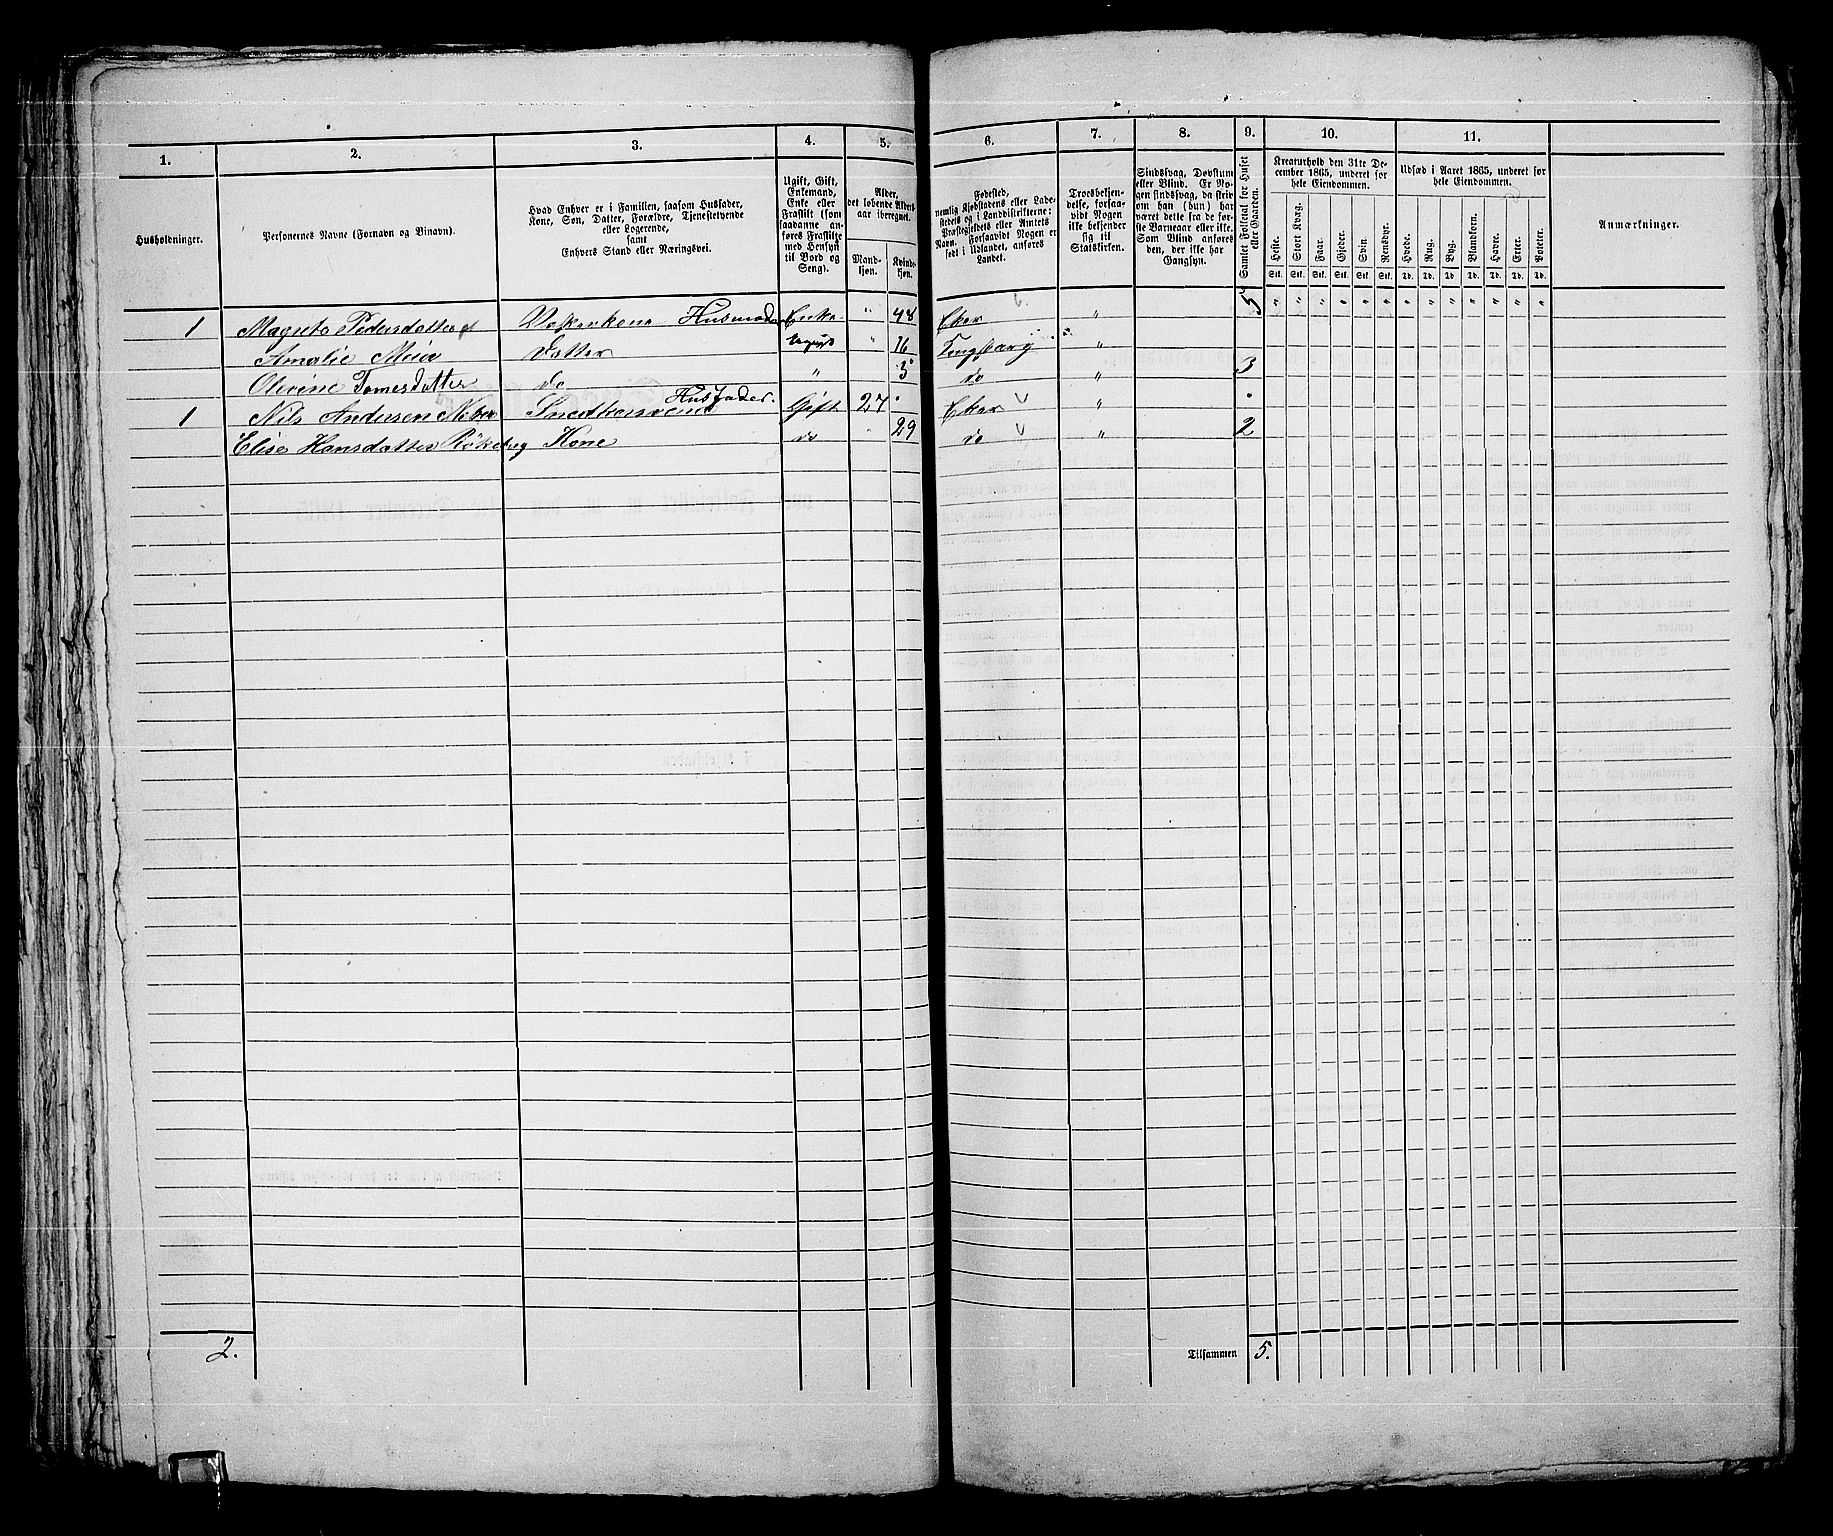 1. 2. 3. 4. 5. 6. 7. 8. 9. 10. 11.
Husholdninger.
Personernes Navne (Fornavn og Binavn).
Hvad Enhver er i Familien, saasom Husfader,
Kone, Søn, Datter, Forældre, Tjenestetyende
eller Logerende,
samt
Enhvers Stand eller Næringsvei.
Ugift, Gift,
Enkemand,
Enke eller
Fraskilt (som
saadanne an-
føres Fraskilte
med Hensyn
til Bord og
Seng).
Alder,
det løbende Alders-
aar iberegnet.
Mand-
kjøn.
Kvinde-
kjøn.
Fødested,
nemlig Kjøbstadens eller Lade-
stedets og i Landdistrikterne:
Præstegjeldets eller Amtets
Navn. Forsaavidt Nogen er
født i Udlandet, anføres
Landet.
Troesbekjen-
delse, forsaa-
vidt Nogen
ikke bekjender
sig til
Statskirken.
Sindssvag, Døvstum
eller Blind. Er No-
gen sindssvag, da skrives
om han (hun) har
været dette fra de før-
ste Barneaar eller ikke.
Som Blind anføres
den, der ikke har
Gangsyn.
Samlet Folketal for Huset
eller Gaarden.
Kreaturhold den 31te De-
cember 1865, underet for
hele Eiendommen.
Heste. Stort Kvæg. Faar. Gjeder. Svin. Rensdyr.
Stk. Stk. Stk. Stk. Stk. Stk.
Udsæd i Aaret 1865, underet for
hele Eiendommen.
Hvede. Rug. Byg. Blandkorn. Havre. Erter. Poteter.
Td. Td. Td. Td. Td. Td. Td.
Anmærkninger.
1 Pedersdatter Husmoder Enke " 48 Eker " 5 " " " " " " " " " " " "
Amalie Datter Ugift " 16 "
Olevine Tomesdatter do " 3 do " 3
1 Nils Andersen Husfader. Gift 27 " Eker " "
Elise Hansdatter Kone do " 29 do " 2
2.
Tilsammen 5.